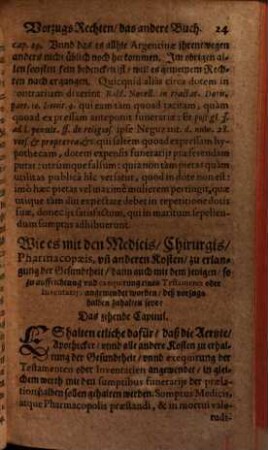 Vorzugs Rechten/ das andere Buch. 24
cap. 29. Vnnd das es allhie Argentinę jhrentwegen
anders nicht üblich noch herkommen. Im übrigen al-
len seind sein bedencken ist/ wie es gemeinen Rech-
ten nach ergangen. Quicquid aliàs circa dotem in
contrarium dixerit Rolf. Novell. in tractat. Dotis,
part. 12. limit. 4. qui eam tam quoad tacitam, quàm
expressam postponit funerariæ: sed
ipse Neguzant. d.
qui saltem quoad expressam hy-
pothecam, dotem expensis funerariis præferendam
putet: utrumque falsum: quando tam
utilitas publica versetur in una quàm in altera dote: &
immò hæc poetas vel maximè mulierem pertingit, quæ
utique tam diu expectare debet in repetitione dotis
suæ, donec satisfactum sit, qui in maritum sepelien-
dum sumptus adhibuit.
Wie es mit den Medicis/ Chirurgis/
Pharmacopæis, vñ anderen Kosten/ zu erlan-
gung der Gesundheit/ dann auch mit dem jenigen/ so
zu auffrichtung vnd exequirung eines Testaments oder
Inventarii, angewendet worden/ deß vorzugs
halben zuhalten seye:
Das zehende Capitul.
ES halten etliche dafür/ daß die Aertzte/
Apothecker/ vnnd alle andere Kosten zu erhal-
tung der Gesundheit/ vnnd exequirung der
Testamenten oder Inventarien angewendet/ in glei-
chem werth mit den sumptibus funerariis der præla-
tion halben sollen gehalten werden: Sumptus Medicis,
atque Pharmacopolis præstandi, & in morbum